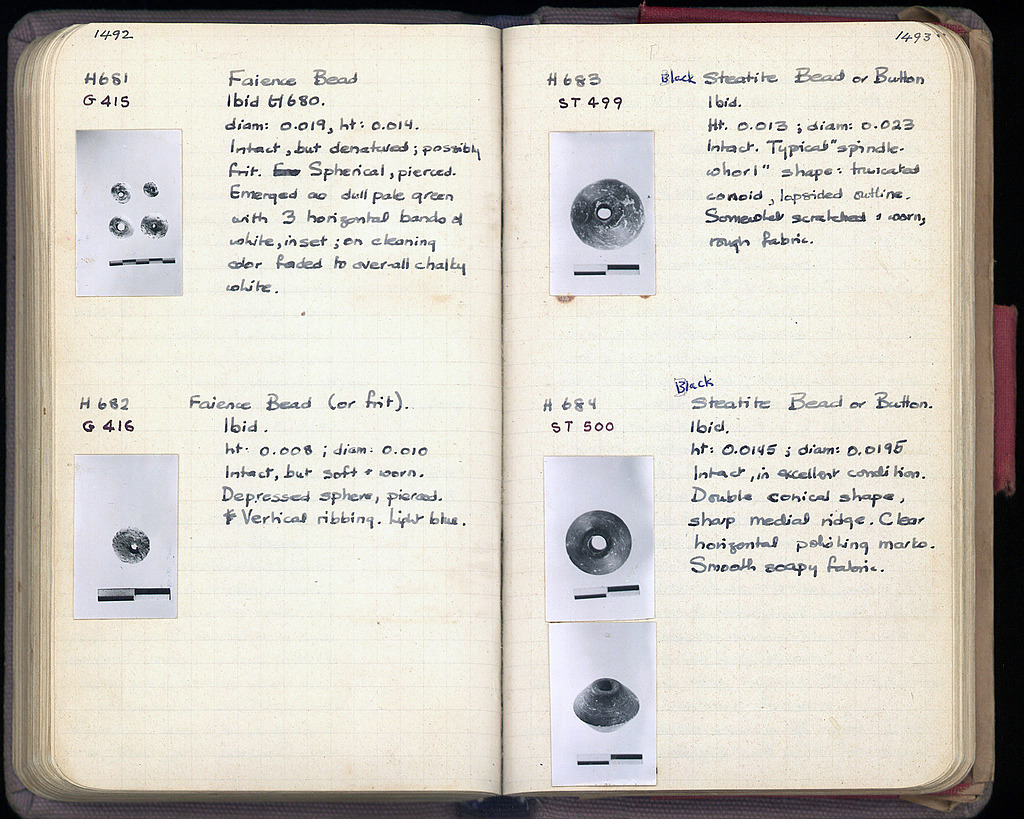 1492
H681 Faience Bead
G 415 Ibid H680.
diam: 0.019, ht: 0.014.
Intact, but denatured; possibly
frit. Spherical, pierced.
Emerged as dull pale green
with 3 horizontal bands of
white, inset; on cleaning
color faded to over-all chalky
white.
H 682 Faience Bead (or frit).
G 416 Ibid.
ht: 0.008; diam: 0.010
Intact, but soft + worn.
Depressed sphere, pierced.
Vertical ribbing. Light blue.
1493
H 683 Black Steatite Bead or Button
ST 499 Ibid.
Ht. 0.013; diam: 0.023
Intact. Typical "spindle-
whorl" shape: truncated
conoid, lopsided outline.
Somewhat scratched + worn,
rough fabric.
Black
H 684 Steatite Bead or Button.
ST 500 Ibid.
ht: 0.0145; diam: 0.0195
Intact, in excellent condition.
Double conical shape,
sharp medial ridge. Clear
horizontal polishing marks.
Smooth soapy fabric.